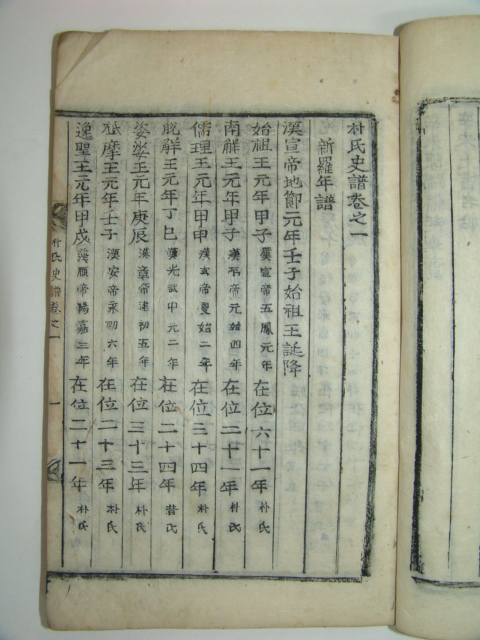 朴氏史譜卷之一
新羅年譜
漢宣帝地節元年壬子始祖王誕降
始祖王元年甲子漢宣帝五鳳元年在位六十一年朴氏
南解王元年甲子漢平帝元始四年在位二十一年朴氏
儒理王元年甲申漢玄帝更始二年在位三十四年朴氏
脫解王元年丁巳漢光武中元二年在位二十四年昔氏
婆娑王元年庚辰漢章帝建初五年在位三十三年朴氏
祗摩王元年壬子漢安帝永初六年在位二十三年朴氏
逸聖王元年甲戌漢順帝陽嘉三年在位二十一年朴氏
朴氏史譜卷之一
一